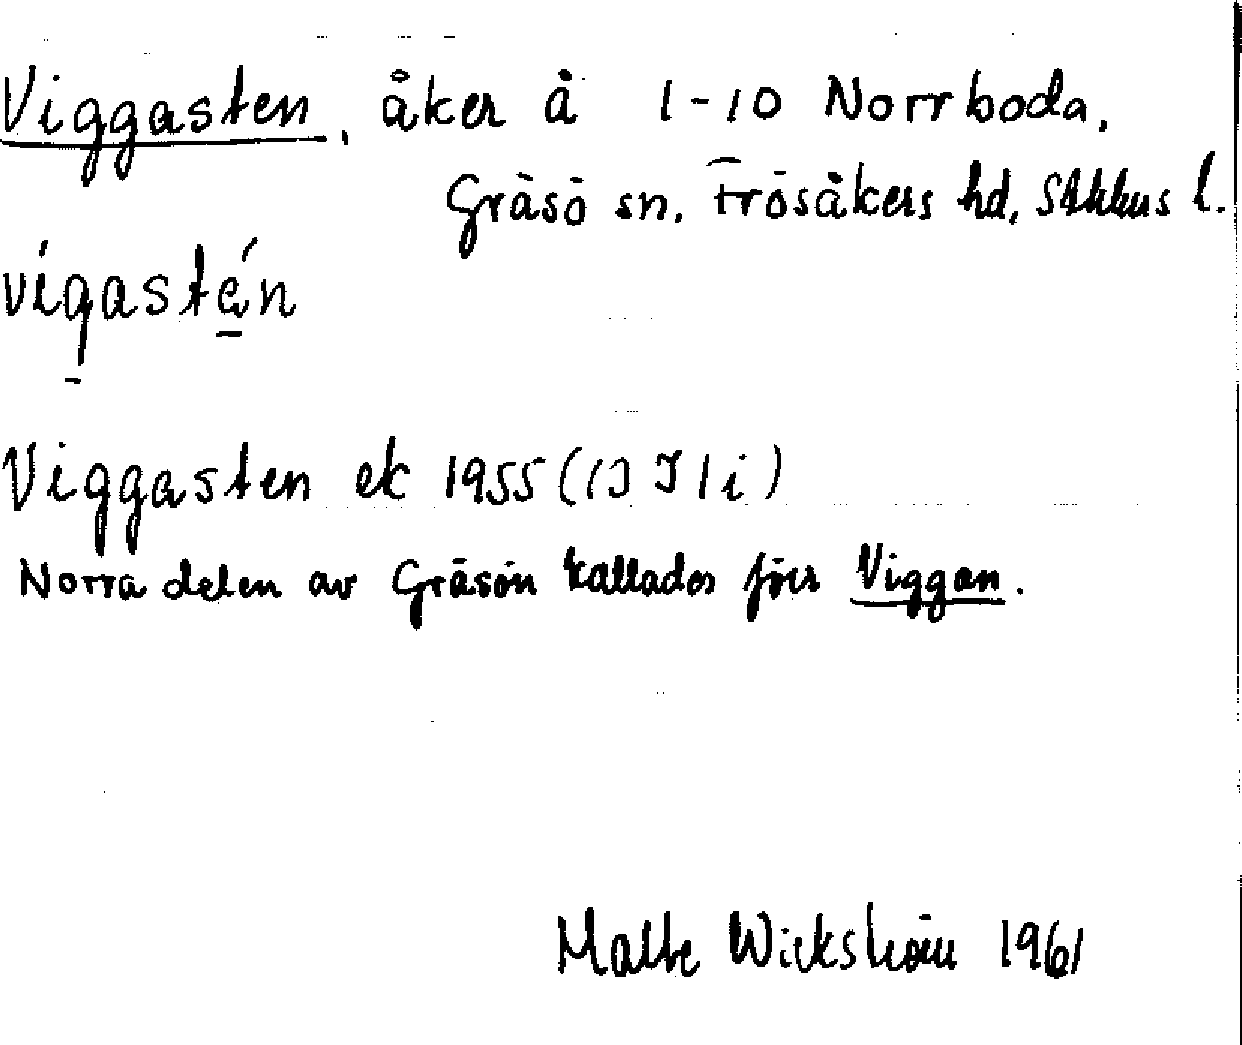 Viggasten, åker å 1-10 Norrboda,
Gräsö sn. Frösåkers hd, Sthlms l.
vigastén
Viggasten ek 1955 (13 I 1 i)
Norra delen av Gräsön kallades förr Viggan.
Malte Wickström 1961